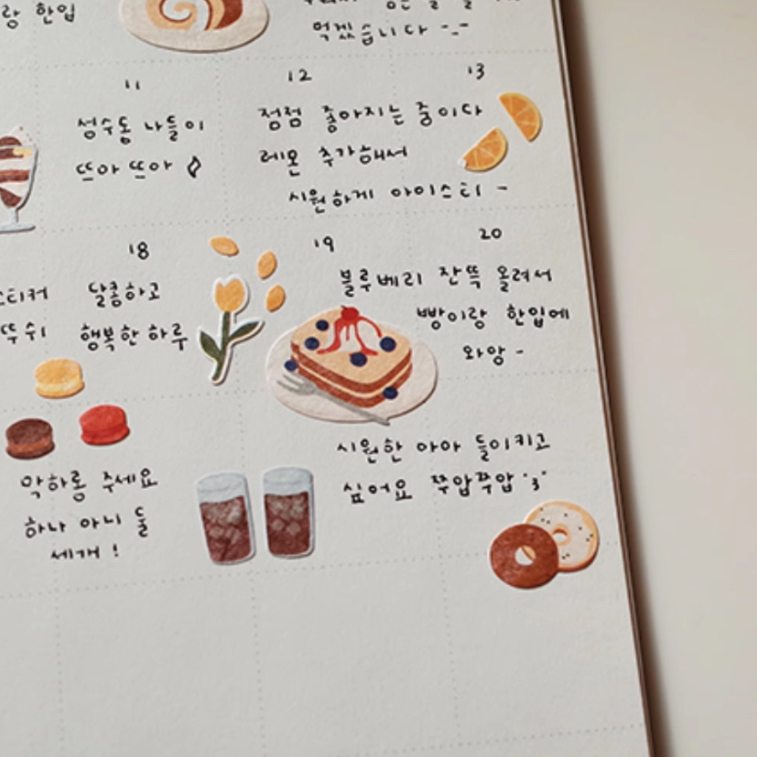 랑 한입
먹겠습니다 -_-
11
12
13
성수동 나들이
뜨아 뜨아
점점 좋아지는 중이다
레몬 추가해서
시원하게 아이스티 -
18
19
20
스티커
달콤하고
행복한 하루
블루베리 잔뜩 올려서
빵이랑 한입에
와앙 -
막하롱 주세요
하나 아니 둘
세개 !
시원한 아아 들이키고
싶어요 쭈압쭈압 '3'